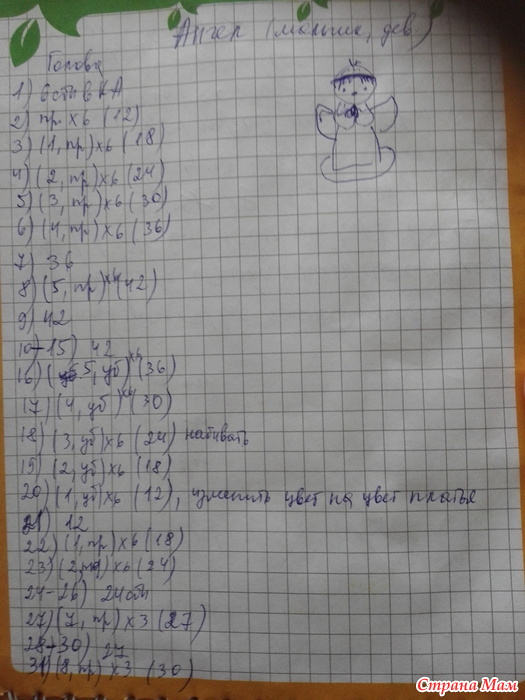 Ангел (малыши, дев)
Голова
1) 6 стп в КА
2) пр х6 (12)
3) (1, пр) х6 (18)
4) (2, пр) х6 (24)
5) (3, пр) х6 (30)
6) (4, пр) х6 (36)
7) 36
8) (5, пр) х6 (42)
9) 42
10-15) 42
16) (5, уб) х6 (36)
17) (4, уб) х6 (30)
18) (3, уб) х6 (24) набивать
19) (2, уб) х6 (18)
20) (1, уб) х6 (12), изменить цвет на цвет платья
21) 12
22) (1, пр) х6 (18)
23) (2, пр) х6 (24)
24-26) 24
27) (7, пр) х3 (27)
28-30) 27
31) (8, пр) х3 (30)
Страна Мам